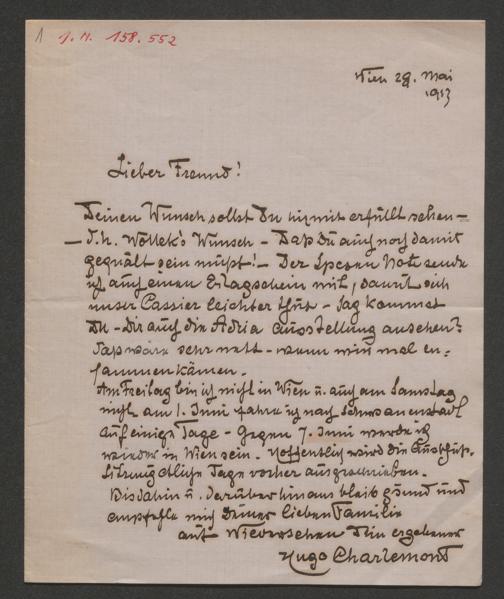 1 J. N. 158.552
Wien 29. Mai
1913
Lieber Freund!
Deinen Wunsch sollst Du hiemit erfüllt sehen –
– d. h. Wollek's Wunsch – Daß Du auch noch damit
gequält sein mußt! – Der Spesen Note sende
ich auch einen Erlagschein mit, damit sich
unser Cassier leichter thut – Sag kommst
Du – Dir auch die Adria Ausstellung ansehen?
Das wäre sehr nett – wenn wir mal zu-
sammenkämen.
Am Freitag bin ich nicht in Wien u. auch am Samstag
nicht am 1. Juni fahre ich nach Schwanenstadt
auf einige Tage – Gegen 7. Juni werde ich
wieder in Wien sein. Hoffentlich wird die Ausschuß-
sitzung etliche Tage vorher ausgeschrieben.
Bis dahin u. darüber hinaus bleib gsund und
empfehle mich Deiner lieben Familie
auf Wiedersehen Dein ergebener
Hugo Charlemont